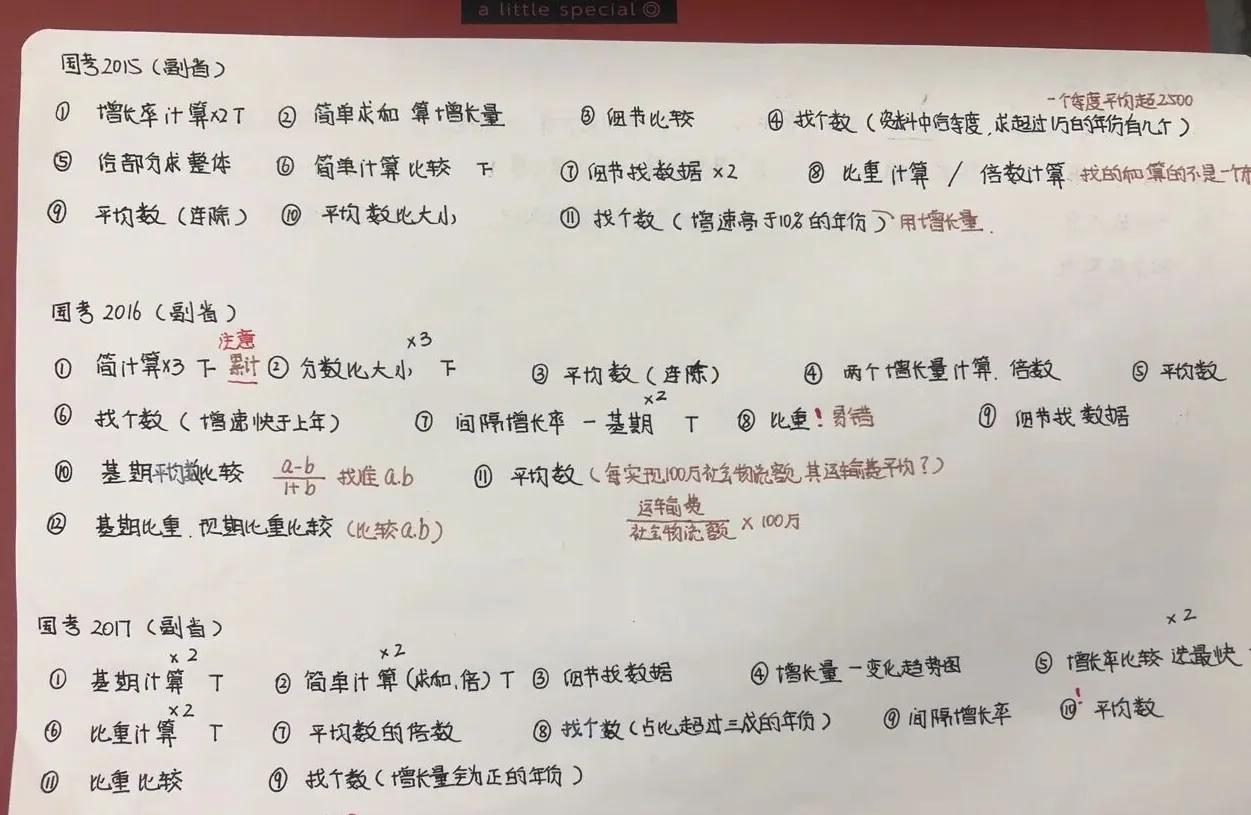 a little special ◎
国考2015（副省）
一个季度平均超2500
① 增长率计算×2 T ② 简单求和 算增长量 ③ 细节比较 ④ 找个数（资料中给季度，求超过1万的年份有几个）
⑤ 给部分求整体 ⑥ 简单计算比较 T ⑦ 细节找数据×2 ⑧ 比重计算 / 倍数计算 找的和算的不是一个
⑨ 平均数（连除） ⑩ 平均数比大小 ⑪ 找个数（增速高于10%的年份）用增长量.
国考2016（副省）
注意 ×3
① 简计算×3 T 累计 ② 分数比大小 T ③ 平均数（连除） ④ 两个增长量计算.倍数 ⑤ 平均数
×2
⑥ 找个数（增速快于上年） ⑦ 间隔增长率 — 基期 T ⑧ 比重！易错 ⑨ 细节找数据
⑩ 基期平均数比较 a-b/1+b 找准a.b ⑪ 平均数（每实现100万社会物流额，其运输费平均？）
⑫ 基期比重.现期比重比较（比较a.b） 运输费/社会物流额 × 100万
国考2017（副省）
×2 ×2 ×2
① 基期计算 T ② 简单计算（求和、倍）T ③ 细节找数据 ④ 增长量 — 变化趋势图 ⑤ 增长率比较 选最快
×2 !
⑥ 比重计算 T ⑦ 平均数的倍数 ⑧ 找个数（占比超过三成的年份） ⑨ 间隔增长率 ⑩ 平均数
⑪ 比重比较 ⑨ 找个数（增长量全为正的年份）